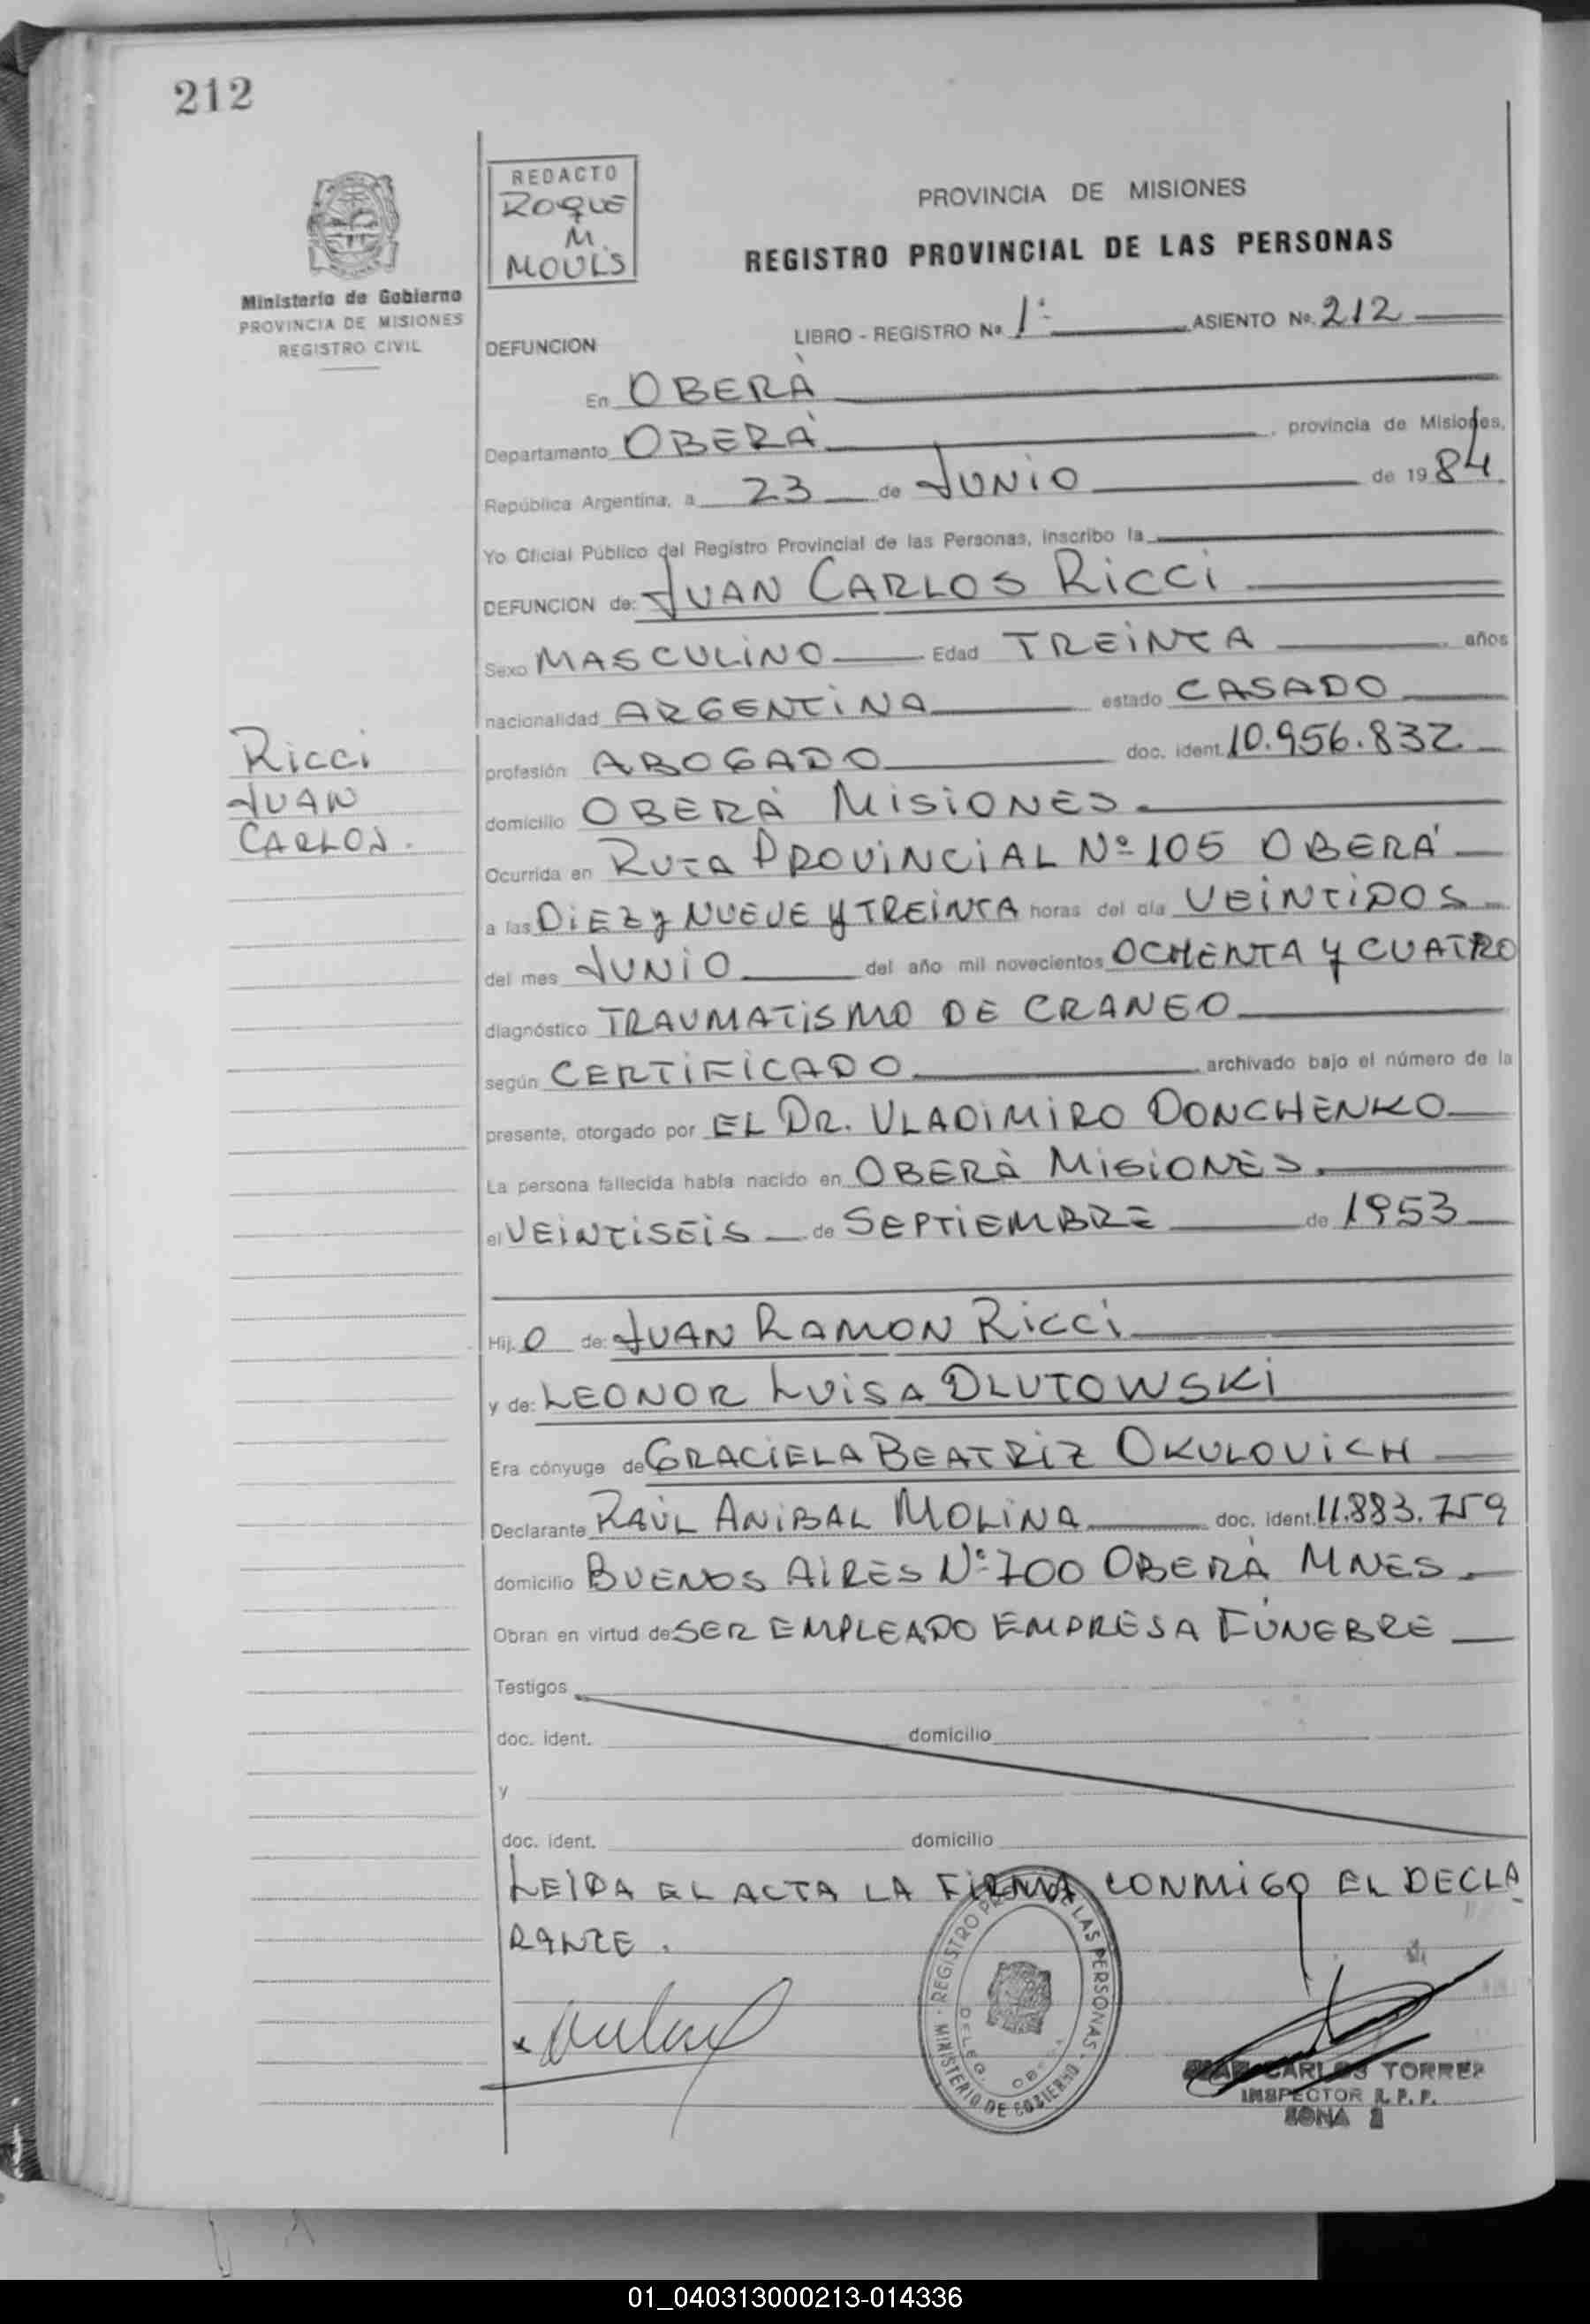 212
REDACTO
ROQUE
M.
MOULS
Ministerio de Gobierno
PROVINCIA DE MISIONES
REGISTRO CIVIL
PROVINCIA DE MISIONES
REGISTRO PROVINCIAL DE LAS PERSONAS
LIBRO - REGISTRO Nº 1º ASIENTO Nº 212
DEFUNCION
En OBERÁ
Departamento OBERÁ, provincia de Misiones,
República Argentina, a 23 de JUNIO de 1984
Yo Oficial Público del Registro Provincial de las Personas, inscribo la
DEFUNCION de: JUAN CARLOS RICCI
Sexo MASCULINO Edad TREINTA años
nacionalidad ARGENTINA estado CASADO
Ricci
JUAN
CARLOS.
profesión ABOGADO doc. ident. 10.956.832
domicilio OBERÁ MISIONES.
Ocurrida en RUTA PROVINCIAL Nº 105 OBERÁ
a las DIEZ y NUEVE y TREINTA horas del día VEINTIDOS
del mes JUNIO del año mil novecientos OCHENTA y CUATRO
diagnóstico TRAUMATISMO DE CRANEO
según CERTIFICADO archivado bajo el número de la
presente, otorgado por EL DR. VLADIMIRO DONCHENKO
La persona fallecida había nacido en OBERÁ MISIONES.
el VEINTISEIS de SEPTIEMBRE de 1953
Hij O de: JUAN RAMON RICCI
y de: LEONOR LUISA DLUTOWSKI
Era cónyuge de GRACIELA BEATRIZ OKULOVICH
Declarante RAÚL ANIBAL MOLINA doc. ident. 11.883.759
domicilio BUENOS AIRES Nº 700 OBERÁ MNES.
Obran en virtud de SER EMPLEADO EMPRESA FÚNEBRE
Testigos
doc. ident. domicilio
y
doc. ident. domicilio
LEIDA EL ACTA LA FIRMA CONMIGO EL DECLA
RANTE.
REGISTRO DE LAS PERSONAS - MINISTERIO DE GOBIERNO
DELEG.
CARLOS TORRES
INSPECTOR R. P. P.
ZONA
01_040313000213-014336